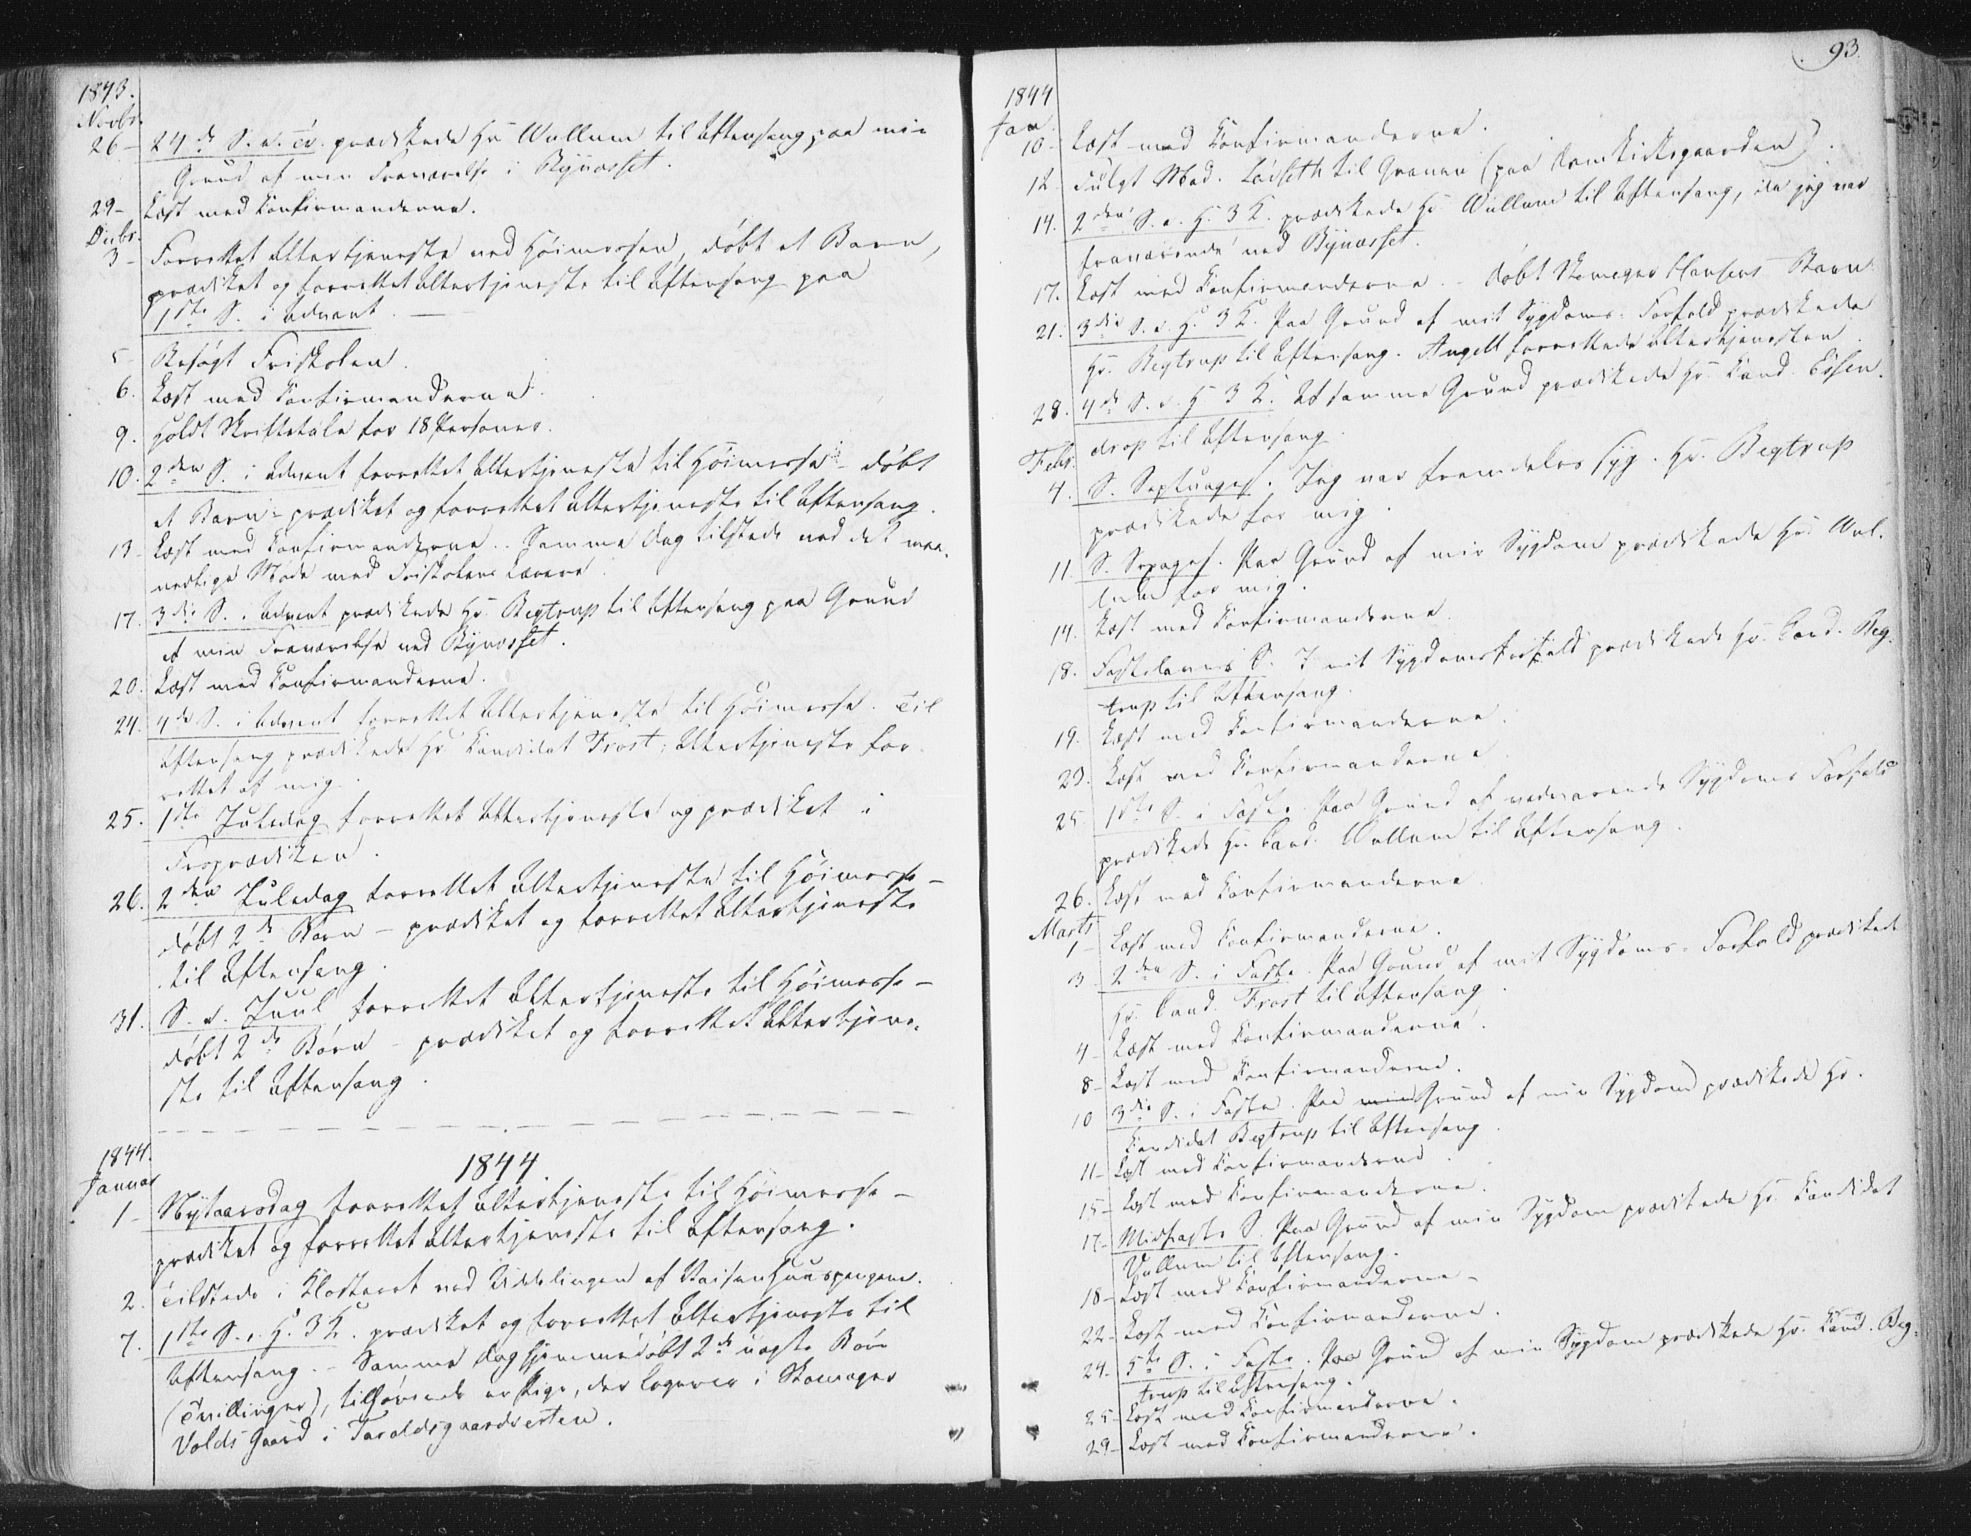 1843.
Novbr.
26 - 24de S. e. Tr. prædikede Hr Wullum til Aftensang paa min
Grund af min Fraværelse i Bynæsset.
29 - Læst med Konfirmanderne.
Decbr.
3 - Forrettet Altertjeneste ved Høimessen, døbt et Barn,
prædiket og forrettet Altertjeneste til Aftensang paa
1ste S. i Advent. —
5 - Besøgt Friskolen.
6. Læst med Konfirmanderne.
9. Holdt Skriftetale for 18 Personer.
10. 2den S. i Advent forrettet Altertjeneste til Høimesse - døbt
et Barn - prædiket og forrettet Altertjeneste til Aftensang.
13 - Læst med Konfirmanderne. Samme Dag tilstede ved det maa-
nedlige Møde med Friskolens Lærere.
17. 3die S. i Advent prædikede Hr. Begtrup til Aftensang paa Grund
af min Fraværelse ved Bynæsset.
20. Læst med Konfirmanderne.
24. 4de S. i Advent forrettet Altertjeneste til Høimesse. Til
Aftensang prædikede Hr Kandidat Frost; Altertjeneste for-
rettet af mig.
25. 1ste Juledag forrettet Altertjeneste og prædiket i
Froprædiken.
26. 2den Juledag forrettet Altertjeneste til Høimesse -
døbt 2de Børn - prædiket og forrettet Altertjeneste
til Aftensang.
31. S. e. Juul forrettet Altertjeneste til Høimesse -
døbt 2de Børn - prædiket og forrettet Altertjene-
ste til Aftensang.
1844.
1844.
Januar
1 - Nytaarsdag forrettet Altertjeneste til Høimesse -
prædiket og forrettet Altertjeneste til Aftensang.
2. Tilstede i Klosteret ved Uddelingen af Vaisenhuuspengene.
7. 1ste S. e. H. 3 K. prædiket og forrettet Altertjeneste til
Aftensang. - Samme Dag hjemmedøbt 2de uægte Børn
(Tvillinger), tilhørende en Pige, der logerer i Skomager
Volds Gaard i Taraldsgaardsveiten.
93.
1844
Jan.
10 - Læst med Konfirmanderne.
12 Fulgt Mad. Løvseth til Graven (paa Domkirkegaarden).
14. 2den S. e. H. 3 K. prædikede Hr Wullum til Aftensang, da jeg var
fraværende ved Bynæsset.
17. Læst med Konfirmanderne. - døbt Skomager Hansens Barn
21. 3die S. e. H. 3 K. Paa Grund af mit Sygdoms-Forfald prædikede
Hr. Begtrup til Aftensang. Angell forrettede Altertjenesten.
28. 4de S. e. H. 3 K. Af samme Grund prædikede Hr. Kand. Essen-
drop til Aftensang.
Febr.
4. S. Septuages. Jeg var fremdeles syg. Hr. Begtrup
prædikede for mig.
11. S. Sexages. Paa Grund af min Sygdom prædikede Hr. Wul-
lum for mig.
14. Læst med Konfirmanderne.
18. Fastelavns S. I mit Sygdomsforfald prædikede Hr. Cand. Beg-
trup til Aftensang.
19. Læst med Konfirmanderne.
23. Læst med Konfirmanderne
25. 1ste S. i Faste. Paa Grund af vedvarende Sygdoms Forfald
prædikede Hr. Cand. Wullum til Aftensang.
26. Læst med Konfirmanderne.
Marts
1 - Læst med Konfirmanderne.
3 2den S. i Faste. Paa Grund af mit Sygdoms-Forfald prædikede
Hr. Cand. Frost til Aftensang.
4 - Læst med Konfirmanderne.
8 - Læst med Konfirmanderne.
10 3die S. i Faste. Paa Grund af min Sygdom prædikede Hr.
Kandidat Begtrup til Aftensang.
11 - Læst med Konfirmanderne.
15 - Læst med Konfirmanderne.
17 - Midfaste S. Paa Grund af min Sygdom prædikede Hr. Kandidat
Wullum til Aftensang.
18 - Læst med Konfirmanderne -
22 - Læst med Konfirmanderne.
24 - 5te S. i Faste. Paa Grund af min Sygdom prædikede Hr. Kand. Beg-
trup til Aftensang.
25 - Læst med Konfirmanderne.
29 - Læst med Konfirmanderne.